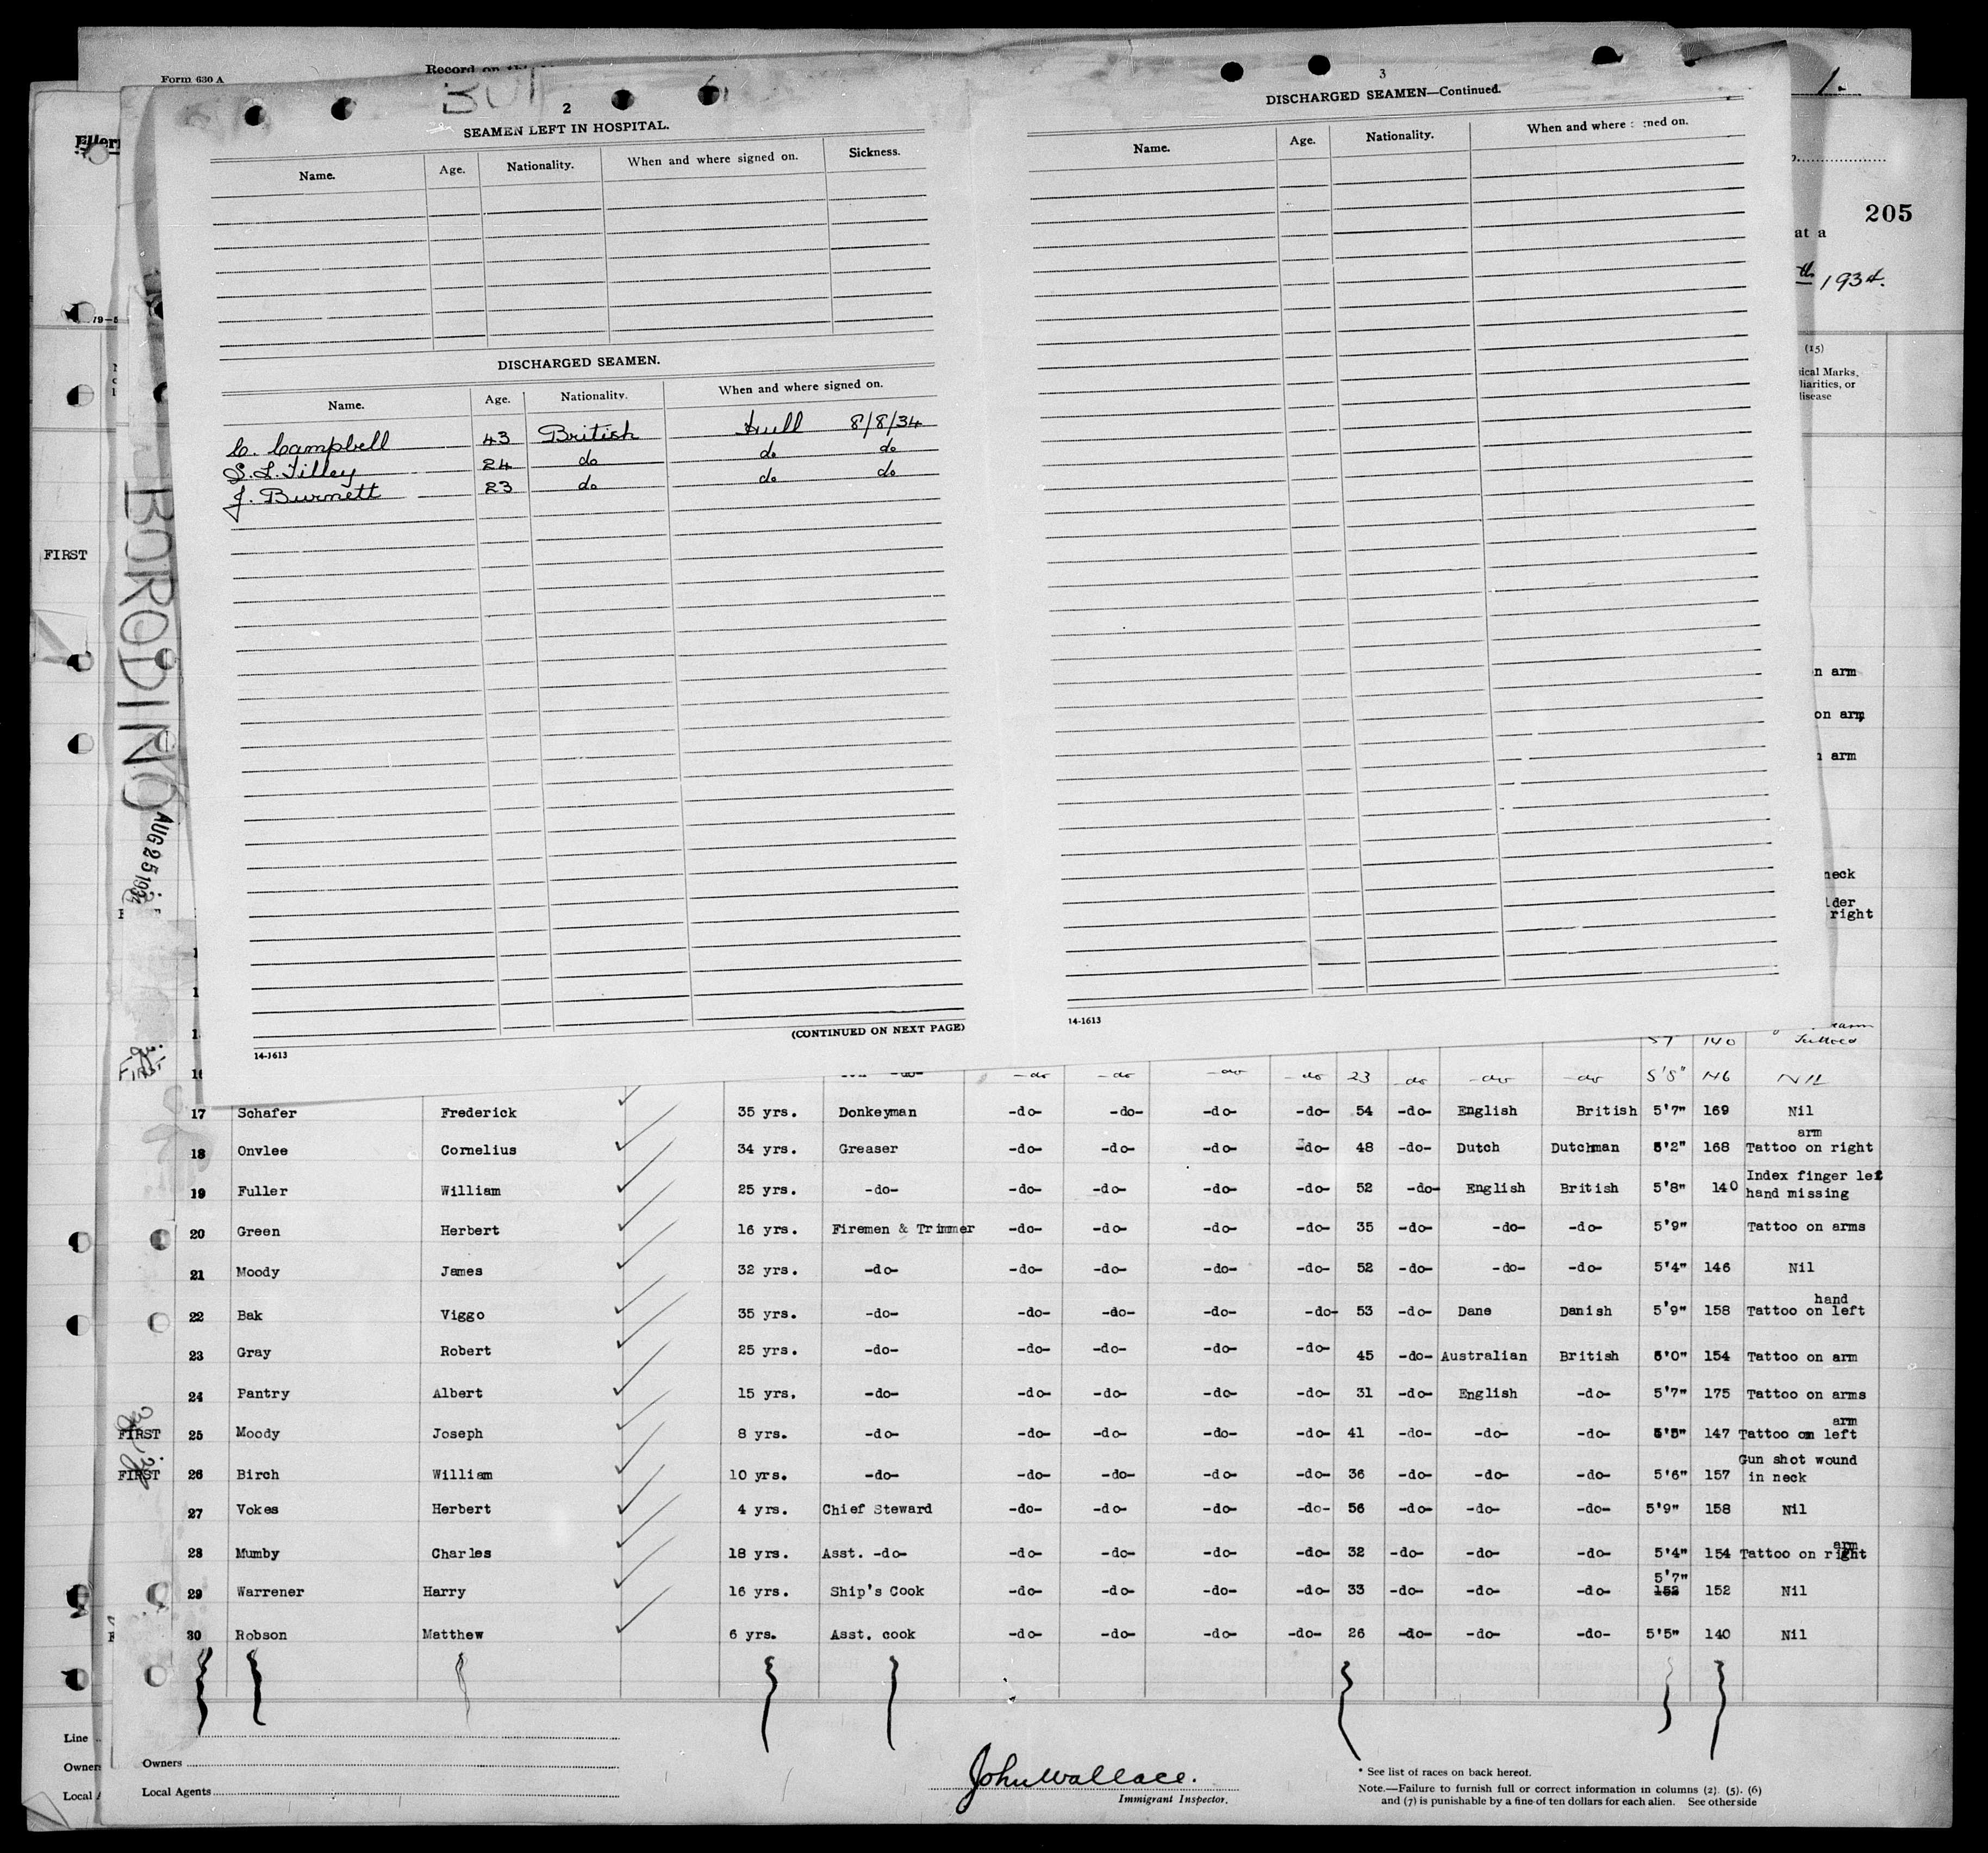 Form 630 A
Record on
205
at a
th 1934.
(15)
ical Marks,
liarities, or
disease
2
SEAMEN LEFT IN HOSPITAL.
Name. Age. Nationality. When and where signed on. Sickness.
DISCHARGED SEAMEN.
Name. Age. Nationality. When and where signed on.
C. Campbell 43 British Hull 8/8/34
S. L. Tilley 24 do do do
J. Burnett 23 do do do
(CONTINUED ON NEXT PAGE)
14-1613
3
DISCHARGED SEAMEN—Continued.
Name. Age. Nationality. When and where ned on.
14-1613
FIRST
BORODINO
AUG 25 1934
n arm
on arm
arm
neck
lder
right
140 Tattoed
16 -do- -do -do -do -do 23 do -do -do 5'5" 146 Nil
17 Schafer Frederick 35 yrs. Donkeyman -do- -do- -do- -do- 54 -do- English British 5'7" 169 Nil
18 Onvlee Cornelius 34 yrs. Greaser -do- -do- -do- -do- 48 -do- Dutch Dutchman 5'2" 168 Tattoo on right arm
19 Fuller William 25 yrs. -do- -do- -do- -do- -do- 52 -do- English British 5'8" 140 Index finger left hand missing
20 Green Herbert 16 yrs. Firemen & Trimmer -do- -do- -do- -do- 35 -do- -do- -do- 5'9" Tattoo on arms
21 Moody James 32 yrs. -do- -do- -do- -do- -do- 52 -do- -do- -do- 5'4" 146 Nil
22 Bak Viggo 35 yrs. -do- -do- -do- -do- -do- 53 -do- Dane Danish 5'9" 158 Tattoo on left hand
23 Gray Robert 25 yrs. -do- -do- -do- -do- -do- 45 -do- Australian British 5'0" 154 Tattoo on arm
24 Pantry Albert 15 yrs. -do- -do- -do- -do- -do- 31 -do- English -do- 5'7" 175 Tattoo on arms
FIRST 25 Moody Joseph 8 yrs. -do- -do- -do- -do- -do- 41 -do- -do- -do- 5'5" 147 Tattoo on left arm
FIRST 26 Birch William 10 yrs. -do- -do- -do- -do- -do- 36 -do- -do- -do- 5'6" 157 Gun shot wound in neck
27 Vokes Herbert 4 yrs. Chief Steward -do- -do- -do- -do- 56 -do- -do- -do- 5'9" 158 Nil
28 Mumby Charles 18 yrs. Asst. -do- -do- -do- -do- -do- 32 -do- -do- -do- 5'4" 154 Tattoo on right arm
29 Warrener Harry 16 yrs. Ship's Cook -do- -do- -do- -do- 33 -do- -do- -do- 5'7" 152 152 Nil
30 Robson Matthew 6 yrs. Asst. cook -do- -do- -do- -do- 26 -do- -do- -do- 5'5" 140 Nil
Line
Owners
Owners
Local Agents
Local A
John Wallace.
Immigrant Inspector.
* See list of races on back hereof.
Note.—Failure to furnish full or correct information in columns (2), (5), (6)
and (7) is punishable by a fine of ten dollars for each alien. See other side